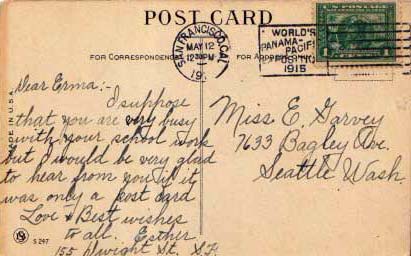 POST CARD
SAN FRANCISCO, CAL.
MAY 12
12 30 PM
19
WORLD'S
PANAMA-
PACIFIC
1915
1
1
FOR CORRESPONDENCE
Dear Erma:-
I suppose
that you are very busy
with your school work
but I would be very glad
to hear from you if it
was only a post card
Love & Best wishes
to all. Esther
155 Dwight St. S.F.
Miss E. Garvey
7633 Bagley Ave.
Seattle Wash.
MADE IN U.S.A.
S 247